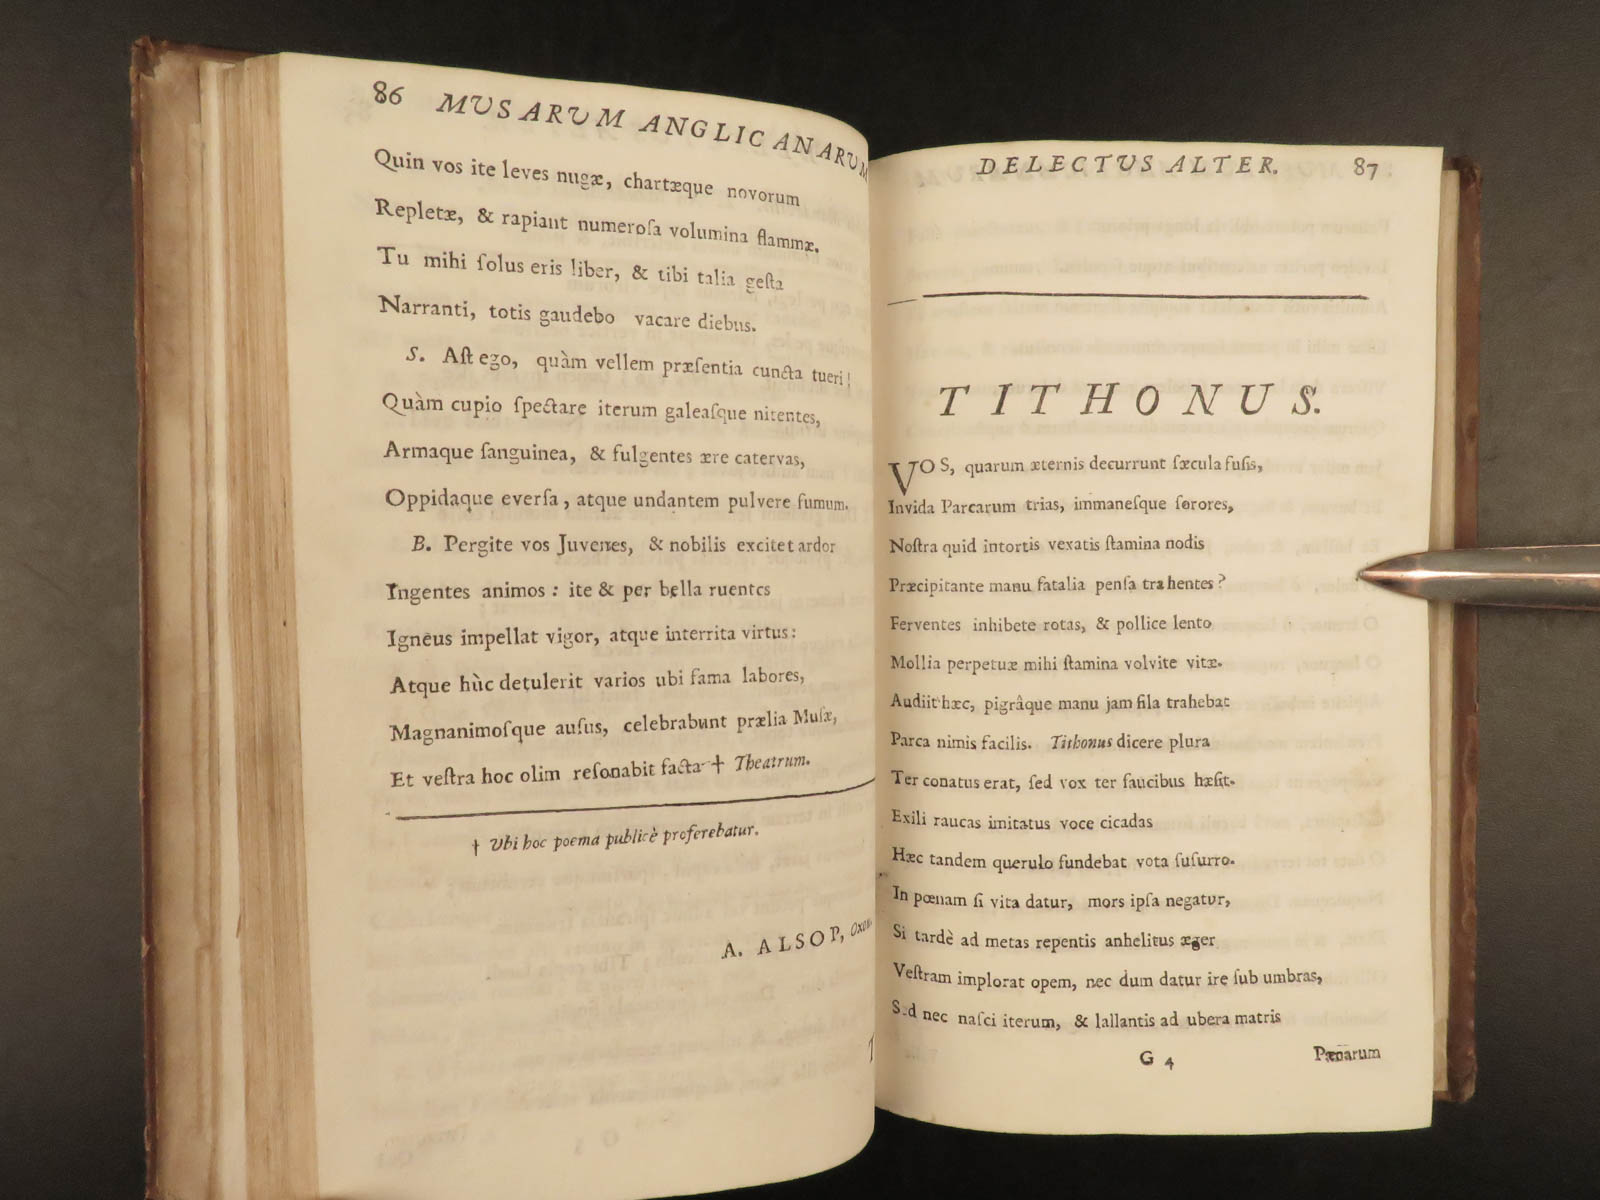 86 MUSARUM ANGLICANARUM
Quin vos ite leves nugæ, chartæque novorum
Repletæ, & rapiant numeroſa volumina flammæ.
Tu mihi ſolus eris liber, & tibi talia geſta
Narranti, totis gaudebo vacare diebus.
S. Aſt ego, quàm vellem præſentia cuncta tueri!
Quàm cupio ſpectare iterum galeaſque nitentes,
Armaque ſanguinea, & fulgentes ære catervas,
Oppidaque everſa, atque undantem pulvere fumum.
B. Pergite vos Juvenes, & nobilis excitet ardor
Ingentes animos: ite & per bella ruentes
Igneus impellat vigor, atque interrita virtus:
Atque hùc detulerit varios ubi fama labores,
Magnanimoſque auſus, celebrabunt prælia Muſæ,
Et veſtra hoc olim reſonabit facta † Theatrum.
† Ubi hoc poema publicè proferebatur.
A. ALSOP, Oxon.
DELECTUS ALTER. 87
TITHONUS.
VOS, quarum æternis decurrunt ſæcula fuſis,
Invida Parcarum trias, immaneſque ſorores,
Noſtra quid intortis vexatis ſtamina nodis
Præcipitante manu fatalia penſa trahentes?
Ferventes inhibete rotas, & pollice lento
Mollia perpetuæ mihi ſtamina volvite vitæ.
Audiit hæc, pigrâque manu jam fila trahebat
Parca nimis facilis. Tithonus dicere plura
Ter conatus erat, ſed vox ter faucibus hæſit.
Exili raucas imitatus voce cicadas
Hæc tandem querulo fundebat vota ſuſurro.
In pœnam ſi vita datur, mors ipſa negatur,
Si tardè ad metas repentis anhelitus æger
Veſtram implorat opem, nec dum datur ire ſub umbras,
Sed nec naſci iterum, & lallantis ad ubera matris
G 4 Pænarum